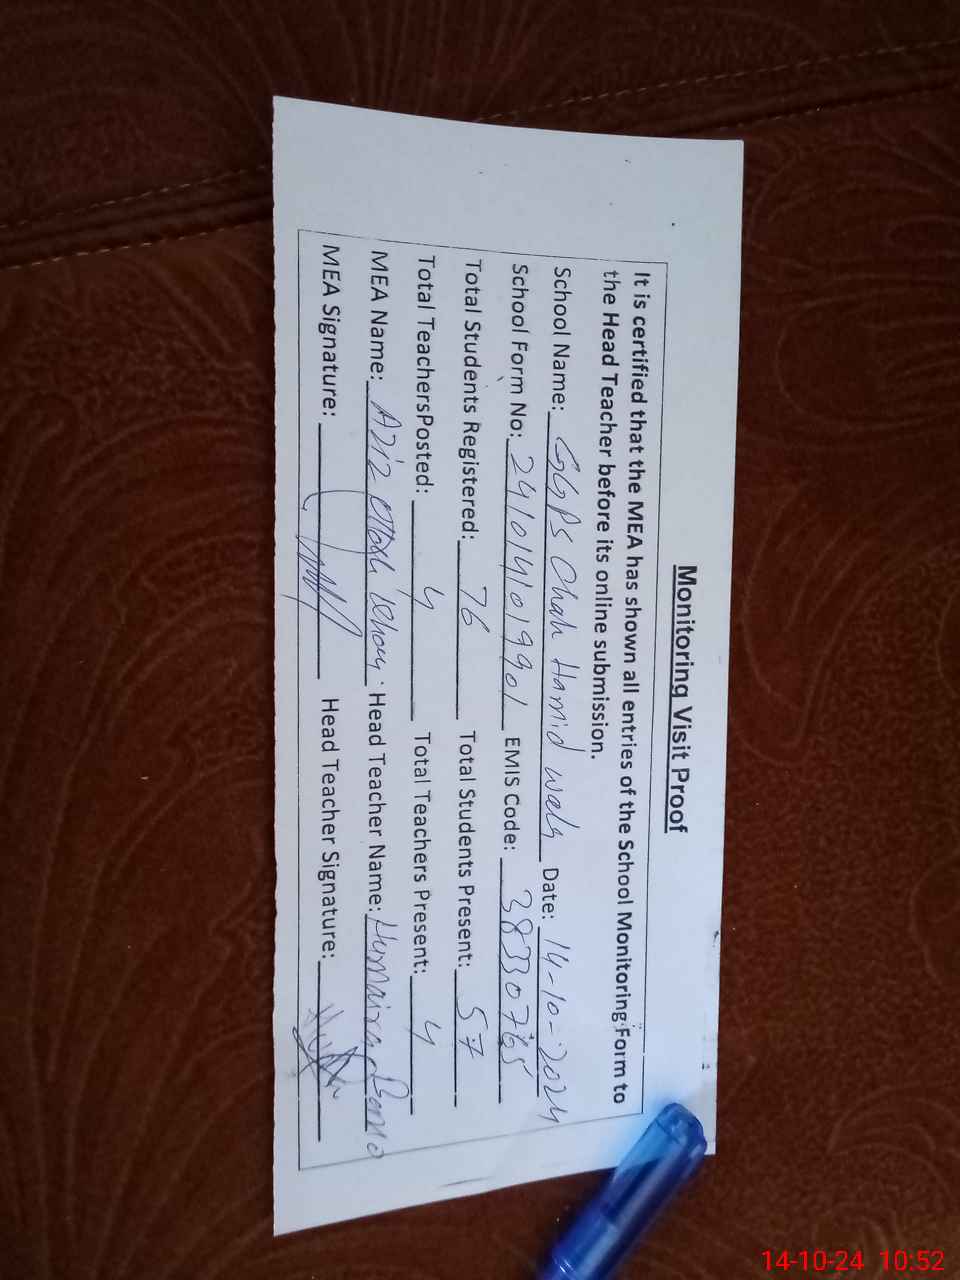 Monitoring Visit Proof
It is certified that the MEA has shown all entries of the School Monitoring Form to
the Head Teacher before its online submission.
School Name: GGPS Chah Hamid wala Date: 14-10-2024
School Form No: 2410141019901 EMIS Code: 38330765
Total Students Registered: 76 Total Students Present: 57
Total TeachersPosted: 4 Total Teachers Present: 4
MEA Name: Aziz Head Teacher Name: Humaira Bano
MEA Signature: Head Teacher Signature:
14-10-24 10:52